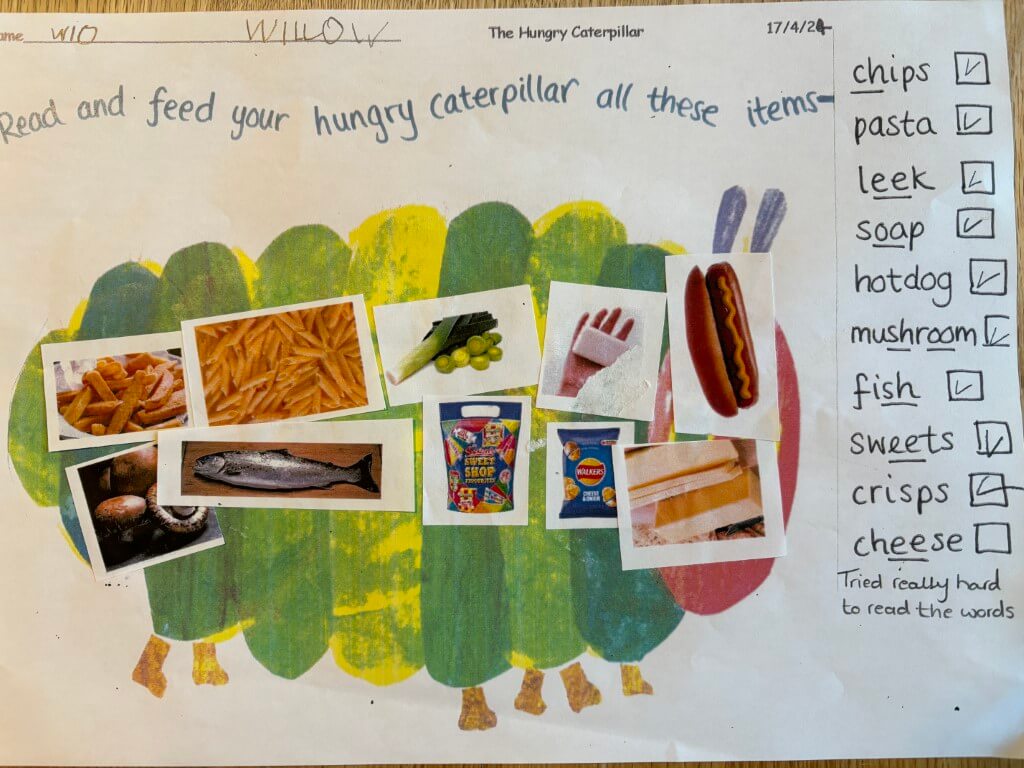 ame WIO WILLOW The Hungry Caterpillar 17/4/24
Read and feed your hungry caterpillar all these items-
chips
pasta
leek
soap
hotdog
mushroom
fish
sweets
crisps
cheese
Tried really hard
to read the words
SWEET
SHOP
WALKERS
CHEESE
& ONION